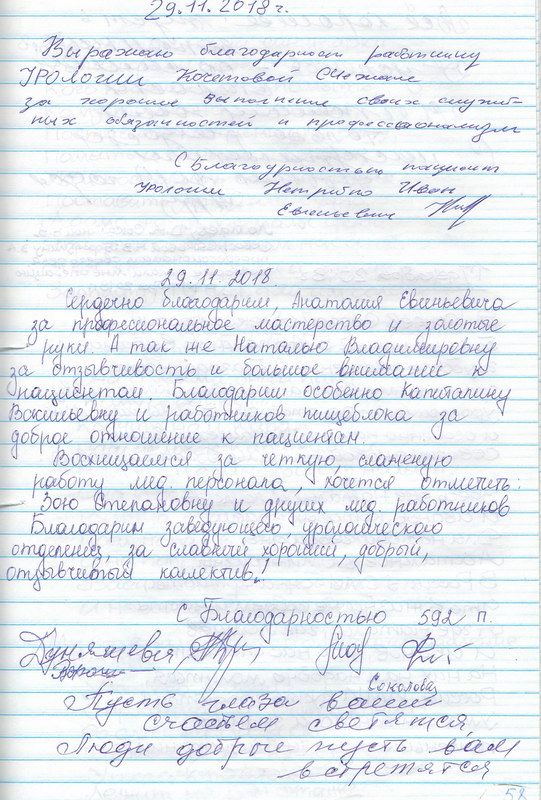 29.11.2018г.
Выражаю благодарность работнику
Урологии Кочетовой Снежане
за хорошое выполнение своих служеб-
ных обязанностей и профессионализм
С Благодарностью пациент
урологии Иван
Евгеньевич
29.11.2018.
Сердечно благодарим, Анатолия Евгиньевича
за професиональное мастерство и золотые
руки. А так же Наталью Владимировну
за отзывчивость и большое внимание к
пациентам. Благодарим особенно Капиталину
и работников пищеблока за
доброе отношение к пациентам.
Восхищаемся за четкую, слаженую
работу мед. персонала, хочется отметить:
Зою Степановну и других мед. работников
Благодарим заведующего, урологического
отделения, за славный хороший, добрый,
отзывчивый коллектив!
С Благодарностью 592 п.
Соколова
Пусть глаза ваши
счастьем светятся,
Люди добрые пусть вам
встретятся
58